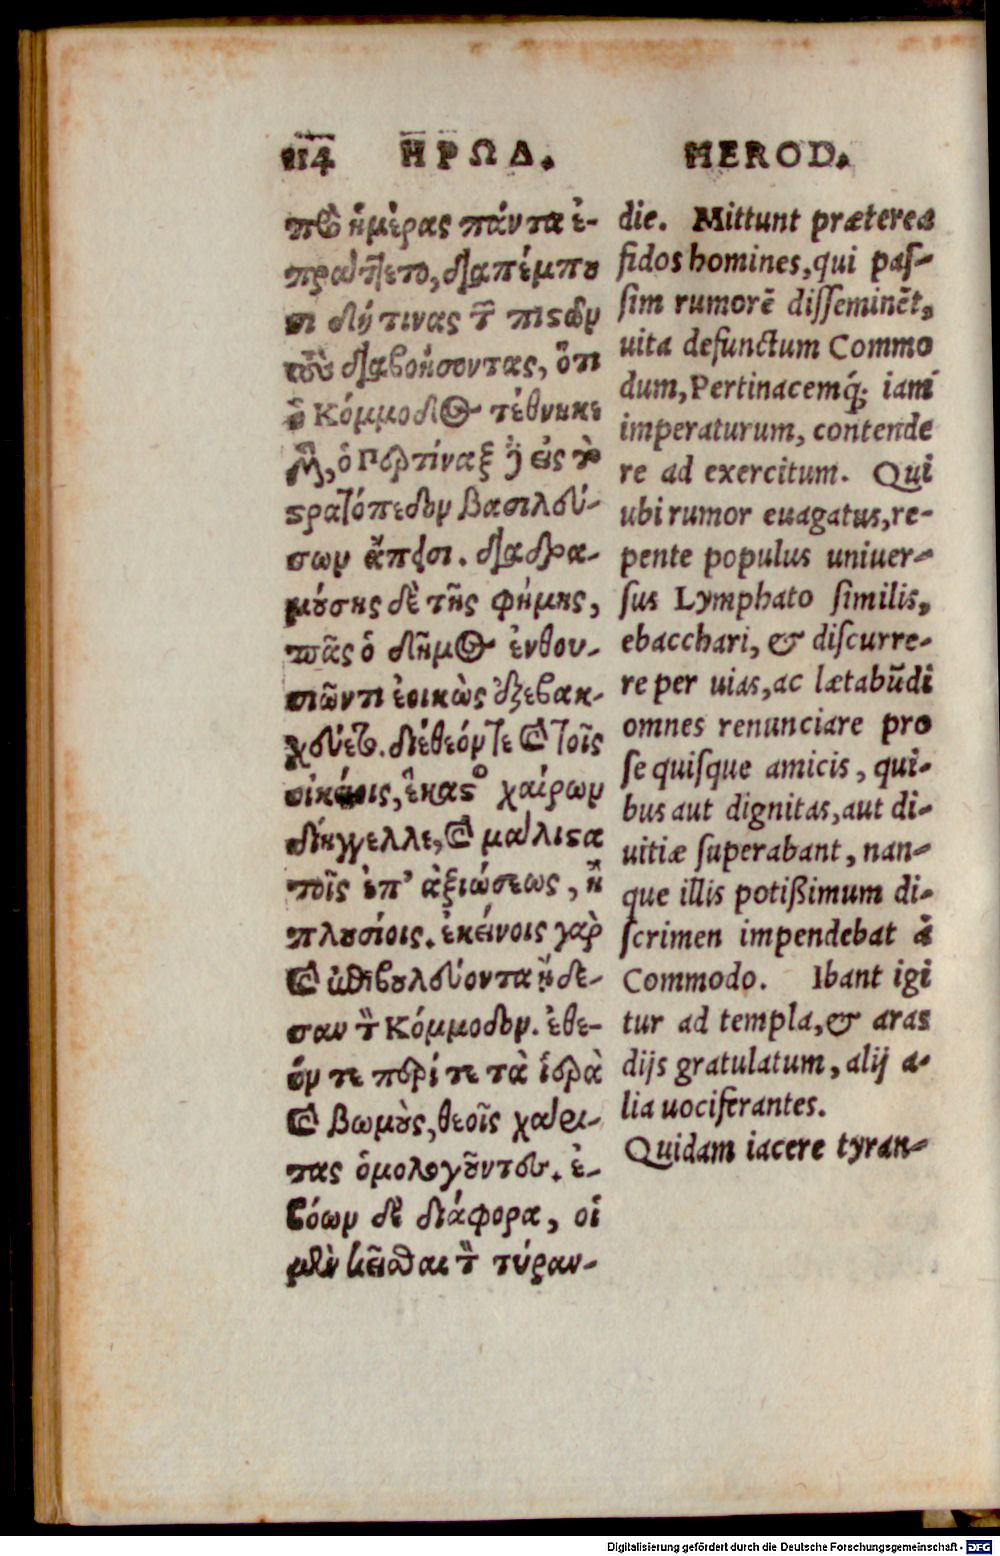 114 ΗΡΩΔ.
πρὸ ἡμέρας πάντα ἐ-
πράττετο, διαπέμπου
σι δή τινας τῶν πιστῶν
τοὺς διαβοήσοντας, ὅτι
ὁ Κόμμοδος τέθνηκε
μὲν, ὁ Περτίναξ δὲ εἰς τὸ
στρατόπεδον βασιλεύ-
σων ἄπεισι. διαδρα-
μούσης δὲ τῆς φήμης,
πᾶς ὁ δῆμος ἐνθου-
σιῶντι ἐοικὼς ἐξεβακ-
χεύετο. διέθεόν τε καὶ τοῖς
οἰκείοις, ἕκαστος χαίρων
διήγγελλε, καὶ μάλιστα
τοῖς ἐπ' ἀξιώσεως, ἢ
πλουσίοις. ἐκείνοις γὰρ
καὶ ἐπιβουλεύοντα ᾔδε-
σαν τὸν Κόμμοδον. ἔθε-
όν τε περί τε τὰ ἱερὰ
καὶ βωμοὺς, θεοῖς χάρι-
τας ὁμολογοῦντες. ἐ-
βόων δὲ διάφορα, οἱ
μὲν κεῖσθαι τὸν τύραν-
HEROD.
die. Mittunt præterea
fidos homines, qui pas-
sim rumorē disseminēt,
uita defunctum Commo
dum, Pertinacemq́; iam
imperaturum, contende
re ad exercitum. Qui
ubi rumor euagatus, re-
pente populus uniuer-
sus Lymphato similis,
ebacchari, & discurre-
re per uias, ac lætabūdi
omnes renunciare pro
se quisque amicis, qui-
bus aut dignitas, aut di-
uitiæ superabant, nan-
que illis potißimum di-
scrimen impendebat à
Commodo. Ibant igi
tur ad templa, & aras
dijs gratulatum, alij a-
lia uociferantes.
Quidam iacere tyran-
Digitalisierung gefördert durch die Deutsche Forschungsgemeinschaft - DFG